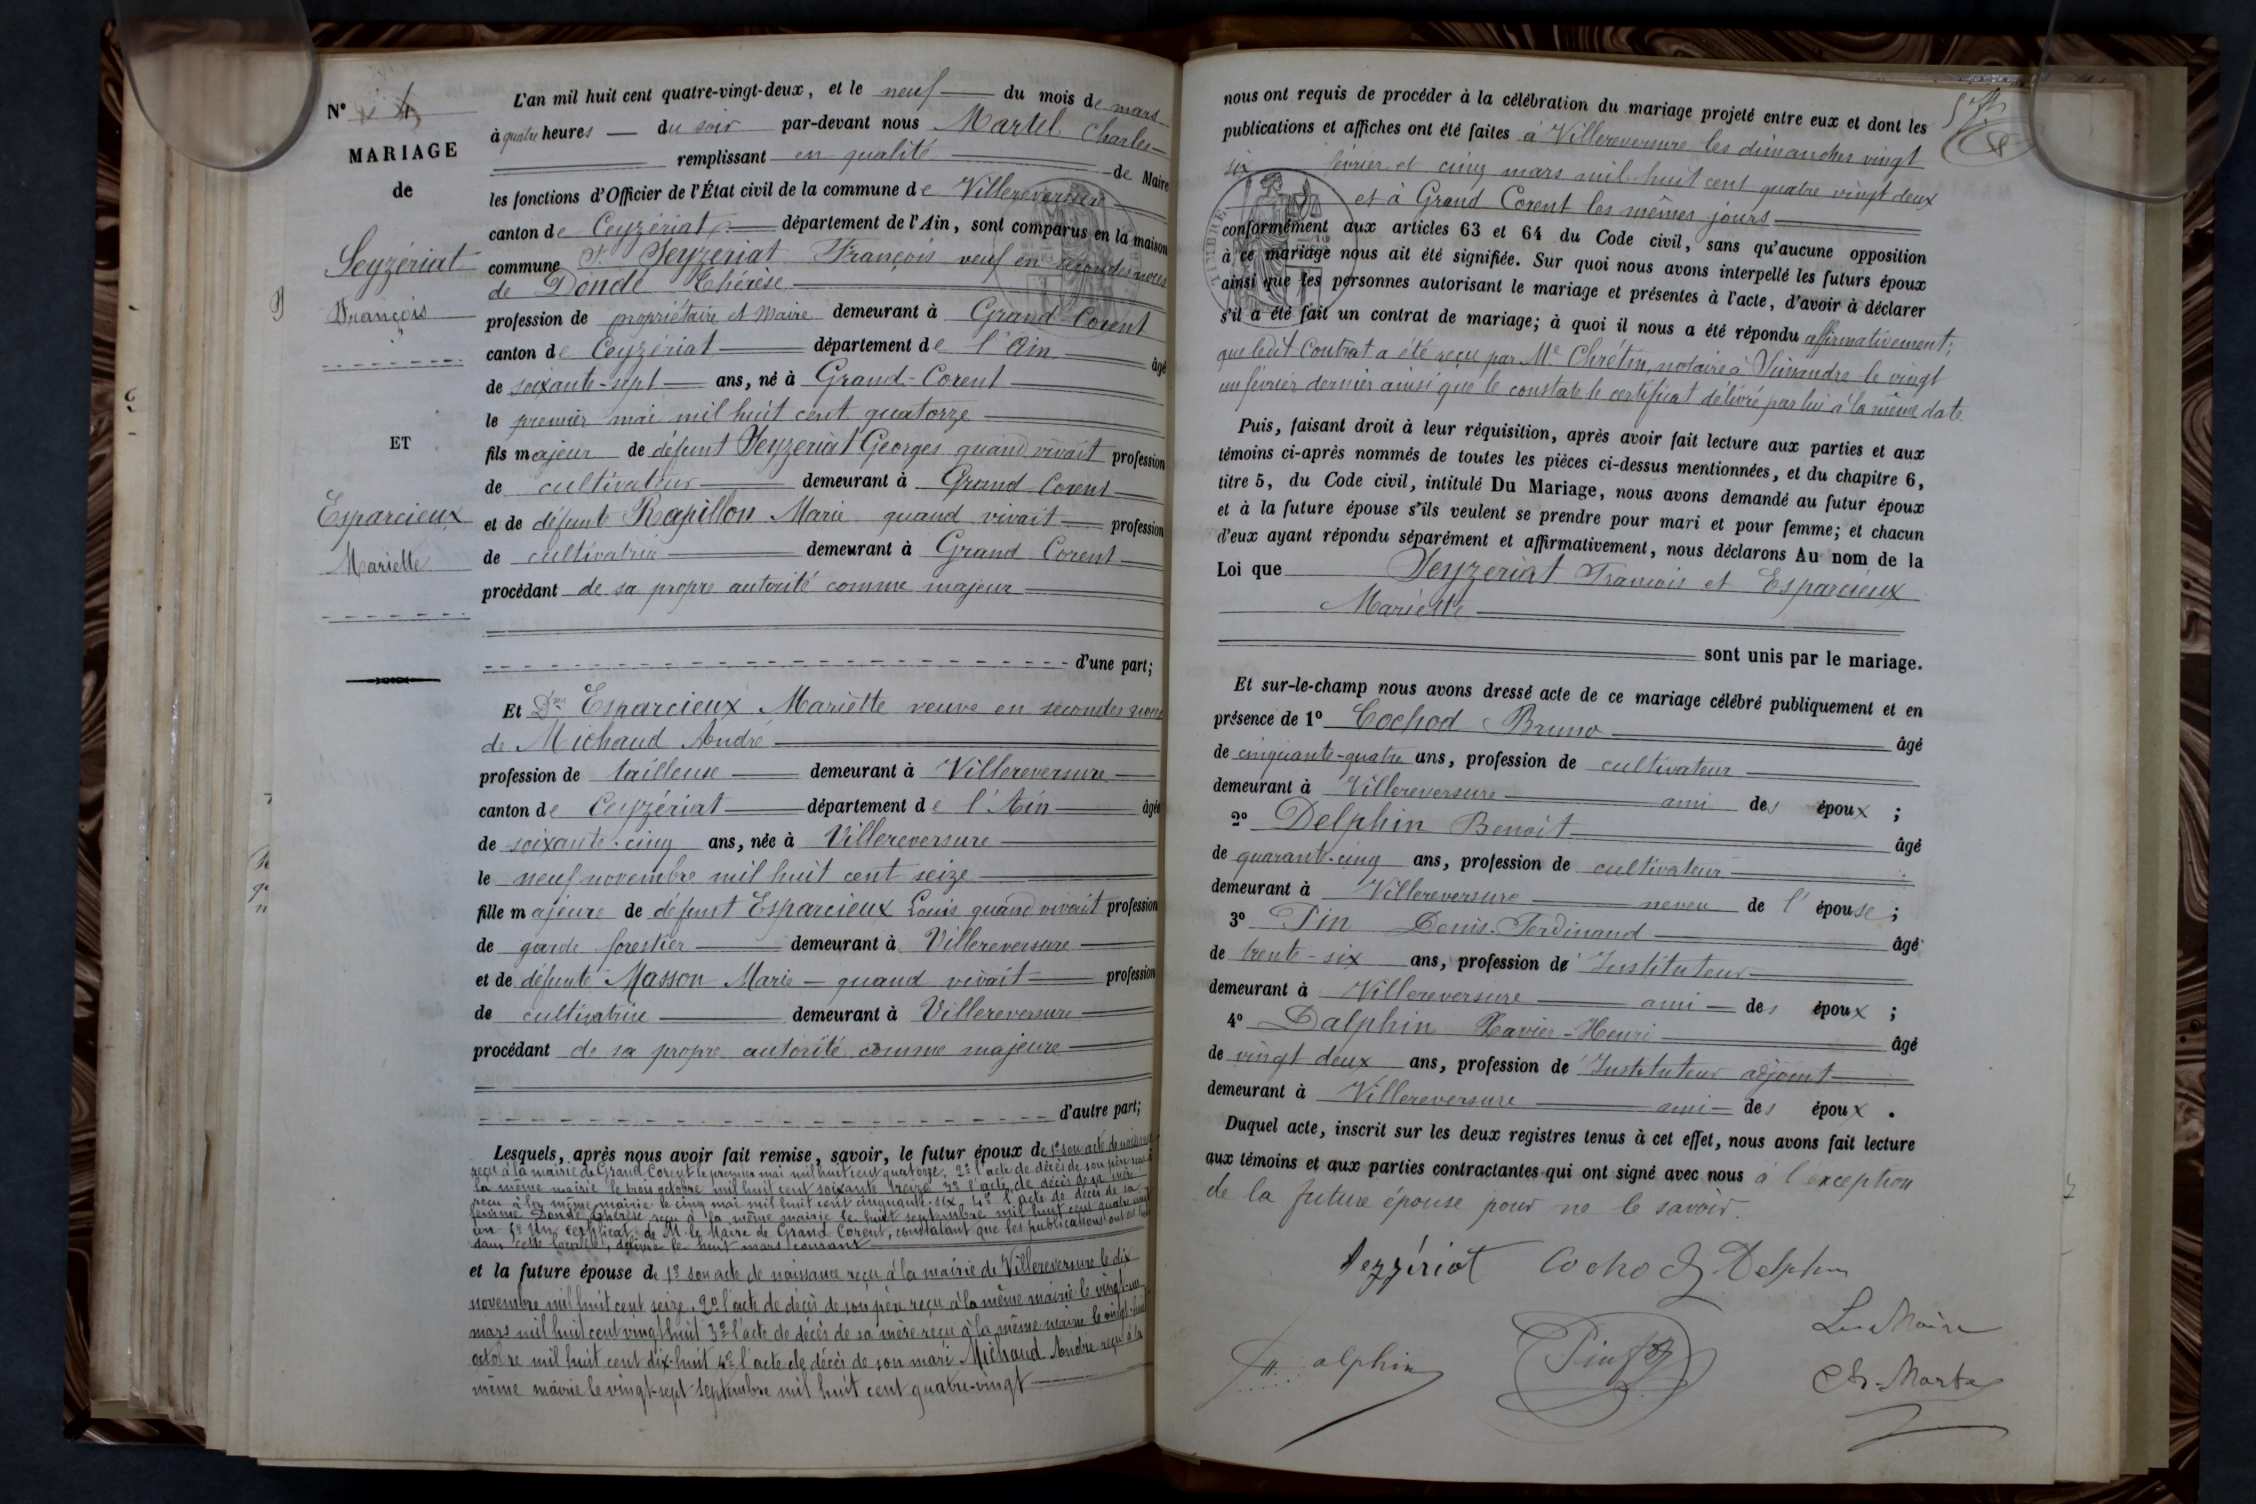 N° 4
MARIAGE
de
Seyzériat
François
ET
Esparcieux
Mariette
L'an mil huit cent quatre-vingt-deux, et le neuf du mois de mars
à quatre heures du soir par-devant nous Martel Charles
remplissant en qualité de Maire
les fonctions d'Officier de l'État civil de la commune de Villereversure
canton de Ceyzériat département de l'Ain, sont comparus en la maison
commune Sr Seyzeriat François veuf en secondes noces
de Dondé Thérèse
profession de propriétaire et Maire demeurant à Grand Corent
canton de Ceyzériat département de l'Ain âgé
de soixante-sept ans, né à Grand-Corent
le premier mai mil huit cent quatorze
fils majeur de défunt Seyzeriat Georges quand vivait profession
de cultivateur demeurant à Grand Corent
et de défunte Rapillon Marie quand vivait profession
de cultivatrice demeurant à Grand Corent
procédant de sa propre autorité comme majeur
d'une part;
Et Dme Esparcieux Mariette veuve en secondes noces
de Michaud André
profession de tailleuse demeurant à Villereversure
canton de Ceyzériat département de l'Ain âgée
de soixante-cinq ans, née à Villereversure
le neuf novembre mil huit cent seize
fille majeure de défunt Esparcieux Louis quand vivait profession
de garde forestier demeurant à Villereversure
et de défunte Masson Marie quand vivait profession
de cultivatrice demeurant à Villereversure
procédant de sa propre autorité comme majeure
d'autre part;
Lesquels, après nous avoir fait remise, savoir, le futur époux de 1° son acte de naissance
reçu à la mairie de Grand Corent le premier mai mil huit cent quatorze, 2° l'acte de décès de son père reçu à
la même mairie le trois octobre mil huit cent soixante treize 3° l'acte de décès de sa mère
reçu à la même mairie le cinq mai mil huit cent cinquante-six 4° l'acte de décès de sa
femme Dondé Thérèse reçu à la même mairie le huit septembre mil huit cent quatre vingt
un 5° Un certificat de M. le Maire de Grand Corent, constatant que les publications ont été faites
dans cette localité, délivré le huit mars courant
et la future épouse de 1° son acte de naissance reçu à la mairie de Villereversure le dix
novembre mil huit cent seize, 2° l'acte de décès de son père reçu à la même mairie le vingt-un
mars mil huit cent vingt huit 3° l'acte de décès de sa mère reçu à la même mairie le vingt-huit
octobre mil huit cent dix-huit 4° l'acte de décès de son mari Michaud André reçu à la
même mairie le vingt-sept septembre mil huit cent quatre-vingt
nous ont requis de procéder à la célébration du mariage projeté entre eux et dont les
publications et affiches ont été faites à Villereversure les dimanches vingt
six février et cinq mars mil huit cent quatre vingt deux
et à Grand Corent les mêmes jours
conformément aux articles 63 et 64 du Code civil, sans qu'aucune opposition
à ce mariage nous ait été signifiée. Sur quoi nous avons interpellé les futurs époux
ainsi que les personnes autorisant le mariage et présentes à l'acte, d'avoir à déclarer
s'il a été fait un contrat de mariage; à quoi il nous a été répondu affirmativement;
que ledit Contrat a été reçu par Me Chrétin, notaire à Simandre le vingt
un février dernier ainsi que le constate le certificat délivré par lui à la même date
Puis, faisant droit à leur réquisition, après avoir fait lecture aux parties et aux
témoins ci-après nommés de toutes les pièces ci-dessus mentionnées, et du chapitre 6,
titre 5, du Code civil, intitulé Du Mariage, nous avons demandé au futur époux
et à la future épouse s'ils veulent se prendre pour mari et pour femme; et chacun
d'eux ayant répondu séparément et affirmativement, nous déclarons Au nom de la
Loi que Seyzeriat Francois et Esparcieux
Mariette
sont unis par le mariage.
Et sur-le-champ nous avons dressé acte de ce mariage célébré publiquement et en
présence de 1° Cochod Bruno âgé
de cinquante-quatre ans, profession de cultivateur
demeurant à Villereversure ami des époux ;
2° Delphin Benoit âgé
de quarante-cinq ans, profession de cultivateur
demeurant à Villereversure neveu de l'épouse ;
3° Pin Denis-Ferdinand âgé
de trente-six ans, profession de Instituteur
demeurant à Villereversure ami des époux ;
4° Dalphin Xavier-Henri âgé
de vingt deux ans, profession de Instituteur adjoint
demeurant à Villereversure ami des époux .
Duquel acte, inscrit sur les deux registres tenus à cet effet, nous avons fait lecture
aux témoins et aux parties contractantes qui ont signé avec nous à l'exception
de la future épouse pour ne le savoir.
Sezzériat Cochod Delphin
Le Maire
alphin Pin Ch. Martel